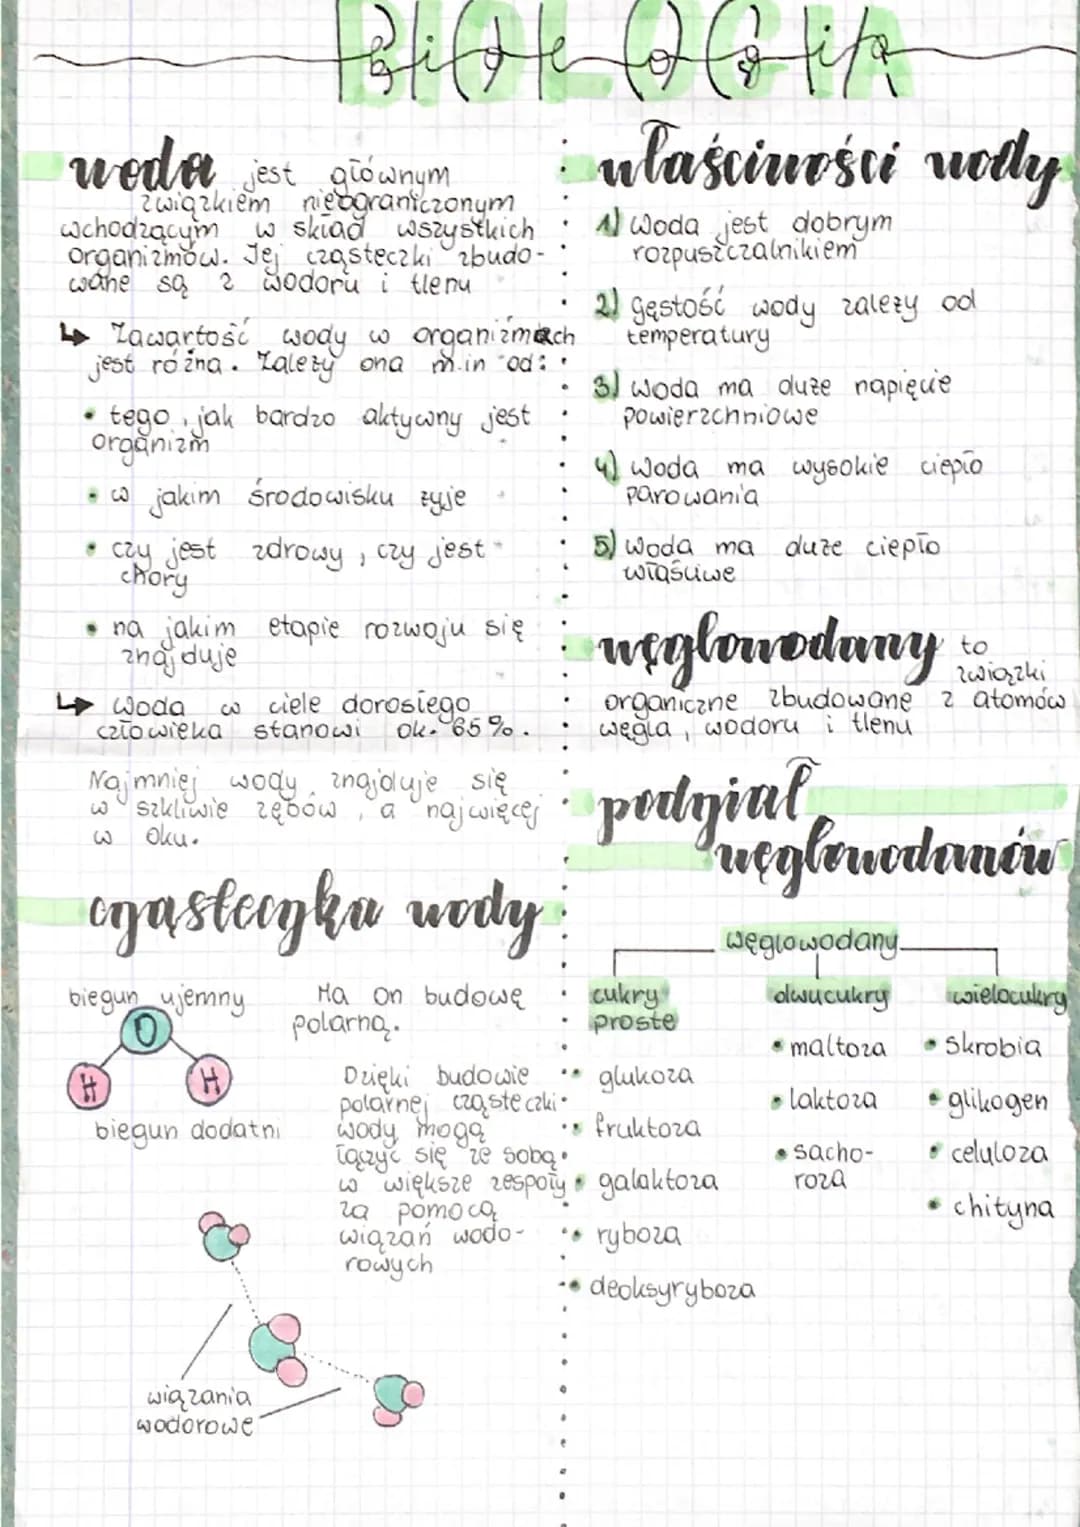 BIOLOGIA
Biologia
woda jest głównym
związkiem nieograniczonym
wchodzącym w skład wszystkich
organizmów. Jej cząsteczki zbudo-
wane są z wodoru i tlenu
↳ Zawartość wody w organizmach
jest różna. Zależy ona m.in od:
• tego, jak bardzo aktywny jest
organizm
• w jakim środowisku żyje
• czy jest zdrowy, czy jest
chory
• na jakim etapie rozwoju się
znajduje
↳ Woda w ciele dorosłego
człowieka stanowi ok. 65%.
Najmniej wody znajduje się
w szkliwie zębów, a najwięcej
w oku.
cząsteczka wody
biegun ujemny
O
H
H
biegun dodatni
Ma on budowę
polarną.
Dzięki budowie
polarnej cząsteczki
wody mogą
łączyć się ze sobą
w większe zespoły
za pomocą
wiązań wodo-
rowych
wiązania
wodorowe
właściwości wody
1) Woda jest dobrym
rozpuszczalnikiem
2) Gęstość wody zależy od
temperatury
3) Woda ma duże napięcie
powierzchniowe
4) Woda ma wysokie ciepło
parowania
5) Woda ma duże ciepło
właściwe
węglowodany to
związki
organiczne zbudowane z atomów
węgla, wodoru i tlenu
podział
węglowodanów
węglowodany
cukry
proste
• glukoza
• fruktoza
• galaktoza
• ryboza
• deoksyryboza
dwucukry
• maltoza
• laktoza
• sacho-
roza
wielocukry
• skrobia
• glikogen
• celuloza
• chityna